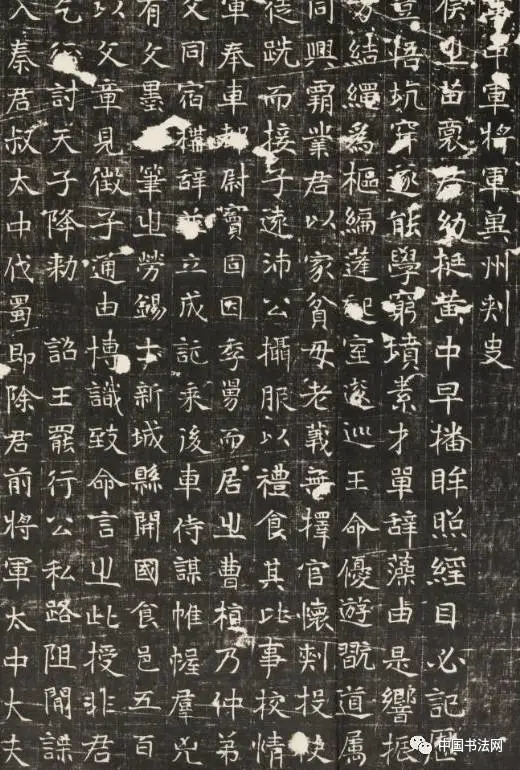 中軍將軍冀州刾史
侯之苗裔君幼挺黃中早播眸照經目必記歷
悟坑穽逐能學窮墳素才單辭藻由是響振
結繩為樞編蓬室巡王命優遊翫道属
同興霸業君以家貧母老義無擇官懷刾投
徒跣而接子遠沛公攝服以禮食其比事挍情
軍奉車都尉竇固因季舅而居之曹植乃仲弟
文同宿構辭並立成記乘後車侍謀帷幄羣兇
有文墨筆之勞錫土新城縣開國食邑五百
以父童見徵子通由博識致命言之此授非君
乞行討天子降勑 詔王羆行公私路阻間諜
入秦君叔太中伐蜀即除君前將軍太中大夫
中国书法网